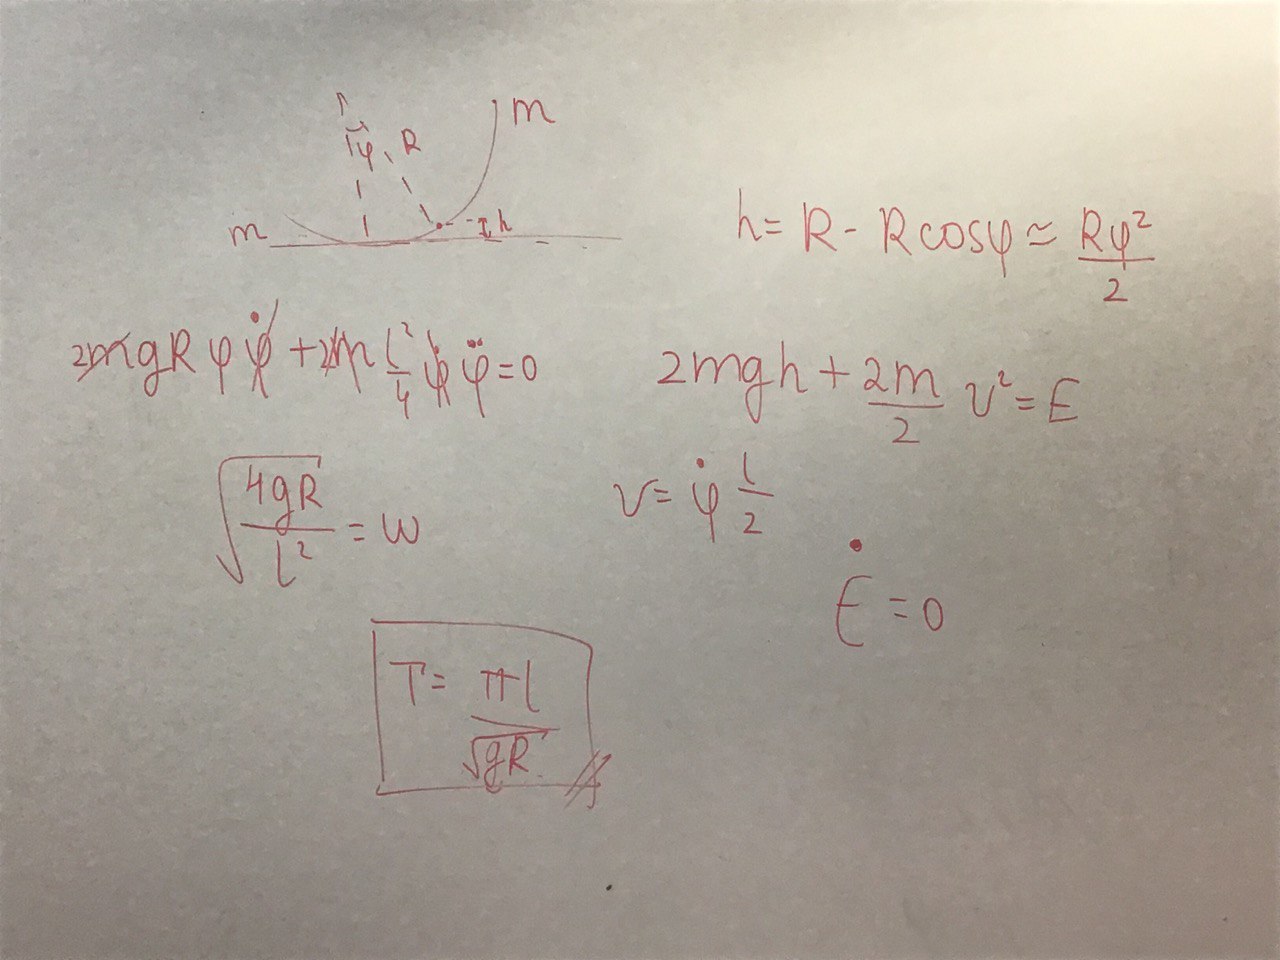 m
φ R
m h
h = R - R cosφ ≃ Rφ²/2
2mgRφφ̇ + 2m l²/4 φ̇φ̈ = 0
2mgh + 2m/2 v² = E
v = φ̇ l/2
√(4gR/l²) = ω
Ė = 0
T = πl/√gR